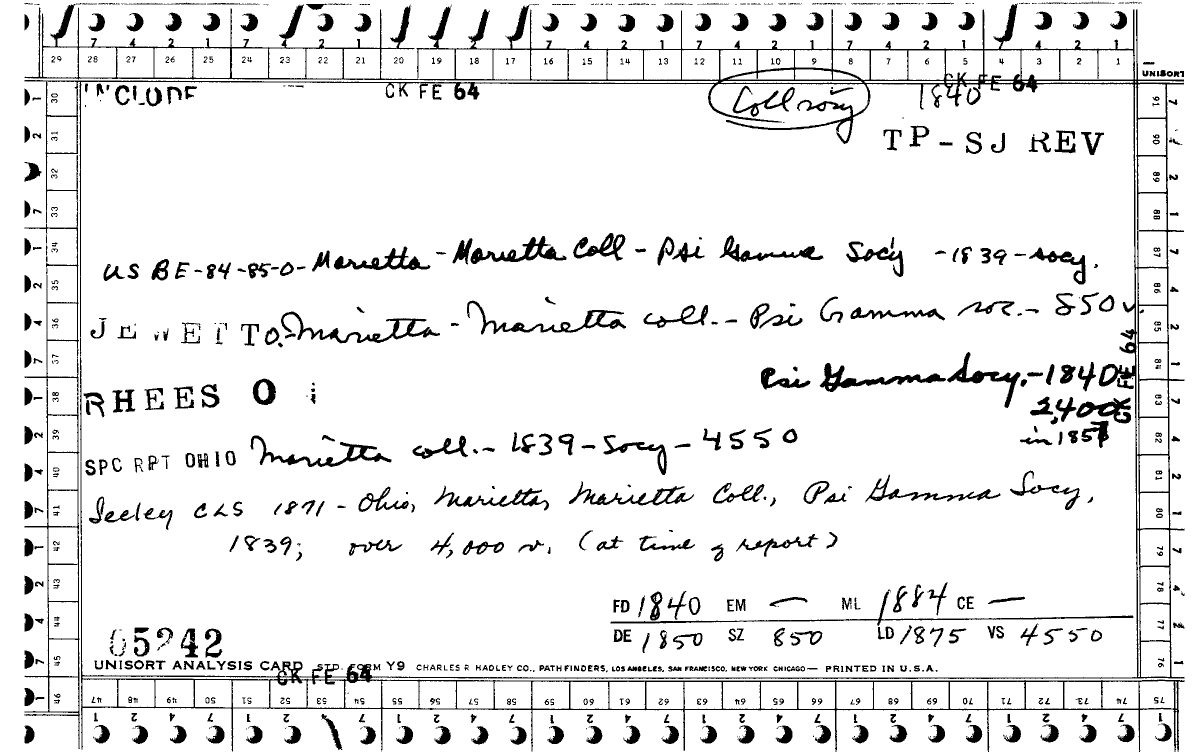 7 4 2 1 7 4 2 1 7 4 2 1 7 4 2 1 7 4 2 1 7 4 2 1 7 4 2 1
29 28 27 26 25 24 23 22 21 20 19 18 17 16 15 14 13 12 11 10 9 8 7 6 5 4 3 2 1
UNISORT
INCLUDE CK FE 64 Coll socy 1840 CK FE 64
TP - SJ REV
US BE-84-85-O-Marietta-Marietta Coll-Psi Gamma Socy -1839-socy.
JEWETT O.-Marietta-Marietta coll.-Psi Gamma soc.-850 v.
Psi Gamma Socy.-1840
RHEES O
2,400
in 1857
CK FE 64
SPC RPT OHIO Marietta coll.-1839-Socy-4550
Seeley CLS 1871-Ohio, Marietta, Marietta Coll., Psi Gamma Socy,
1839; over 4,000 v. (at time of report)
FD 1840 EM — ML 1884 CE —
DE 1850 SZ 850 LD 1875 VS 4550
05242
UNISORT ANALYSIS CARD STD. FORM Y9 CHARLES R HADLEY CO., PATHFINDERS, LOS ANGELES, SAN FRANCISCO, NEW YORK CHICAGO— PRINTED IN U.S.A.
CK FE 64
30 31 32 33 34 35 36 37 38 39 40 41 42 43 44 45 46
91 90 89 88 87 86 85 84 83 82 81 80 79 78 77 76 75
47 48 49 50 51 52 53 54 55 56 57 58 59 60 61 62 63 64 65 66 67 68 69 70 71 72 73 74 75